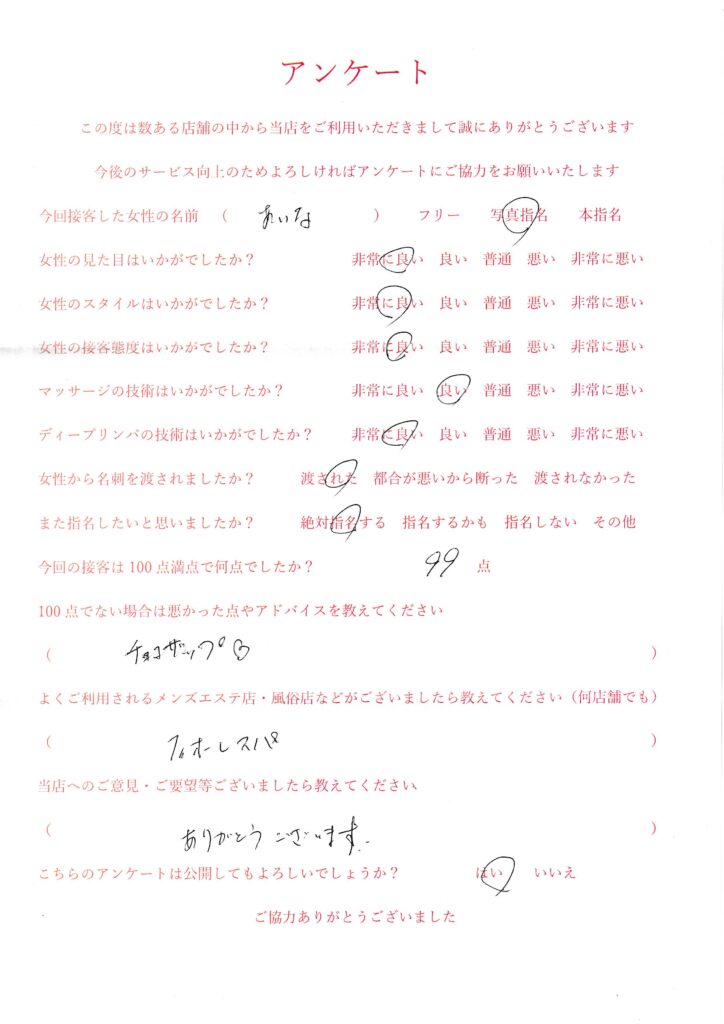 アンケート
この度は数ある店舗の中から当店をご利用いただきまして誠にありがとうございます
今後のサービス向上のためよろしければアンケートにご協力をお願いいたします
今回接客した女性の名前 （ あいな ） フリー 写真指名 本指名
女性の見た目はいかがでしたか？ 非常に良い 良い 普通 悪い 非常に悪い
女性のスタイルはいかがでしたか？ 非常に良い 良い 普通 悪い 非常に悪い
女性の接客態度はいかがでしたか？ 非常に良い 良い 普通 悪い 非常に悪い
マッサージの技術はいかがでしたか？ 非常に良い 良い 普通 悪い 非常に悪い
ディープリンパの技術はいかがでしたか？ 非常に良い 良い 普通 悪い 非常に悪い
女性から名刺を渡されましたか？ 渡された 都合が悪いから断った 渡されなかった
また指名したいと思いましたか？ 絶対指名する 指名するかも 指名しない その他
今回の接客は100点満点で何点でしたか？ 99 点
100点でない場合は悪かった点やアドバイスを教えてください
（ チョコザップ ）
よくご利用されるメンズエステ店・風俗店などがございましたら教えてください（何店舗でも）
（ スパ ）
当店へのご意見・ご要望等ございましたら教えてください
（ ありがとうございます ）
こちらのアンケートは公開してもよろしいでしょうか？ はい いいえ
ご協力ありがとうございました